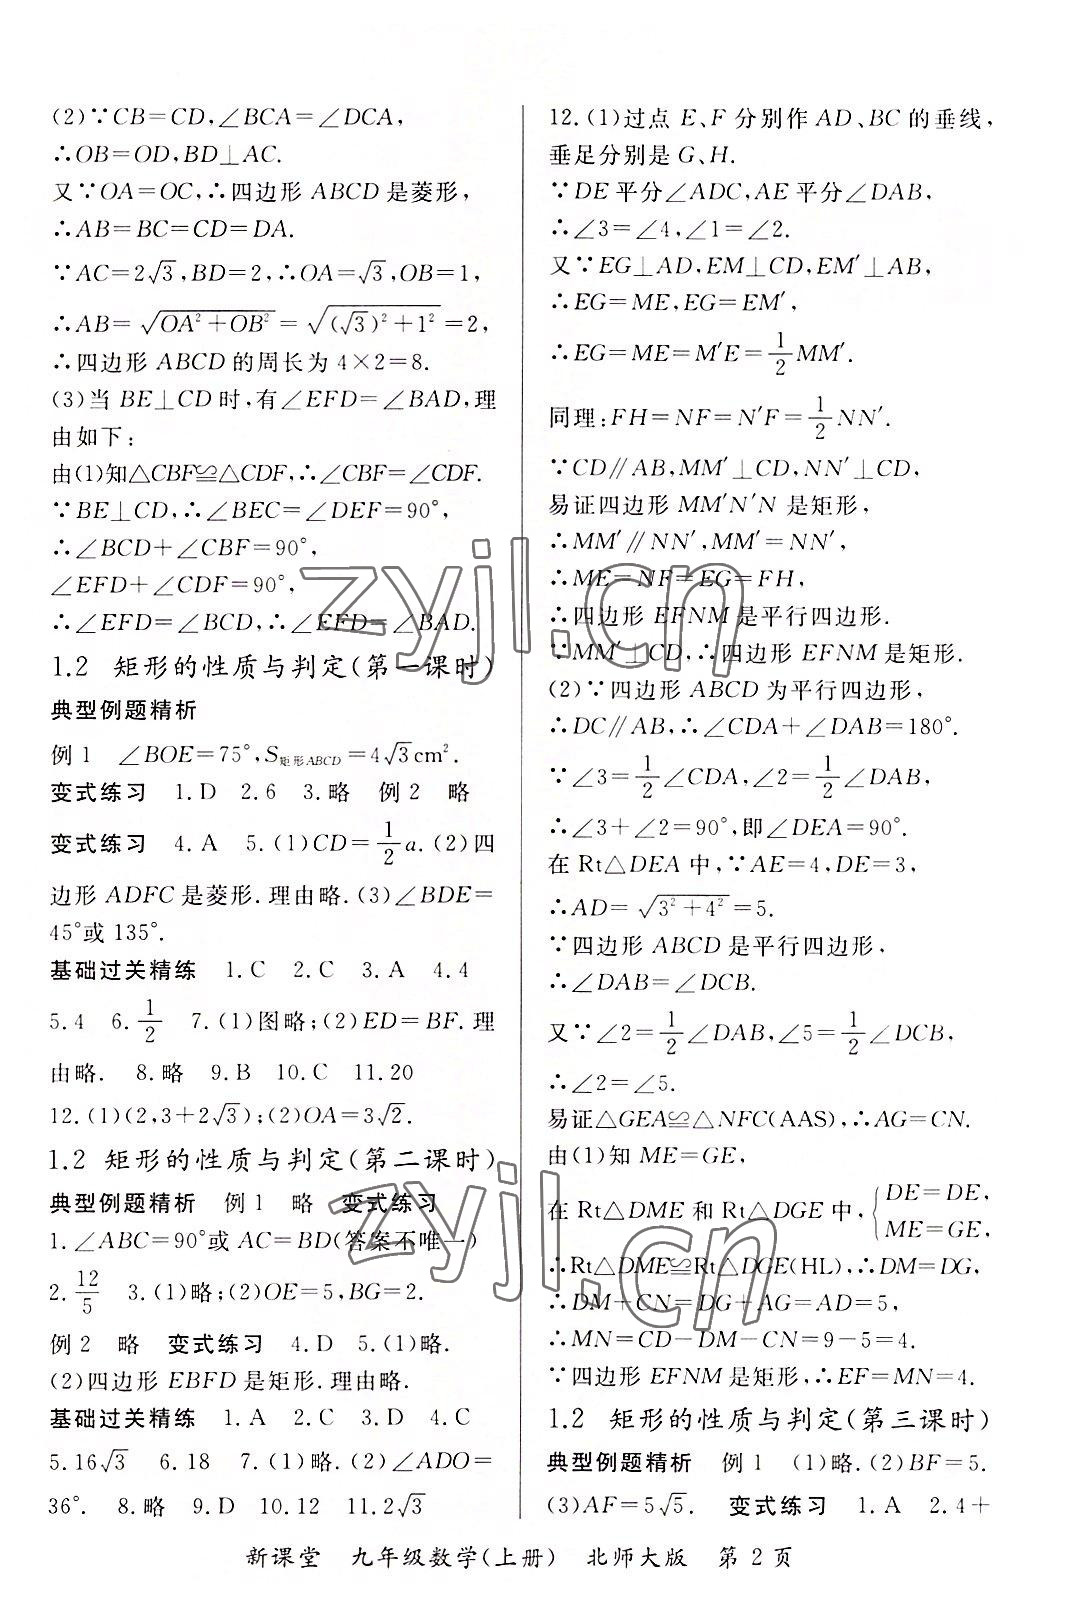 (2)∵CB=CD,∠BCA=∠DCA,
∴OB=OD,BD⊥AC.
又∵OA=OC,∴四边形 ABCD 是菱形,
∴AB=BC=CD=DA.
∵AC=2√3,BD=2,∴OA=√3,OB=1,
∴AB=√(OA²+OB²)=√((√3)²+1²)=2,
∴四边形 ABCD 的周长为 4×2=8.
(3)当 BE⊥CD 时,有∠EFD=∠BAD,理
由如下:
由(1)知△CBF≌△CDF,∴∠CBF=∠CDF.
∵BE⊥CD,∴∠BEC=∠DEF=90°,
∴∠BCD+∠CBF=90°,
∠EFD+∠CDF=90°,
∴∠EFD=∠BCD,∴∠EFD=∠BAD.
1.2 矩形的性质与判定(第一课时)
典型例题精析
例1 ∠BOE=75°,S矩形ABCD=4√3cm².
变式练习 1.D 2.6 3.略 例2 略
变式练习 4.A 5.(1)CD=1/2a.(2)四
边形 ADFC 是菱形.理由略.(3)∠BDE=
45°或 135°.
基础过关精练 1.C 2.C 3.A 4.4
5.4 6.1/2 7.(1)图略;(2)ED=BF.理
由略. 8.略 9.B 10.C 11.20
12.(1)(2,3+2√3);(2)OA=3√2.
1.2 矩形的性质与判定(第二课时)
典型例题精析 例1 略 变式练习
1.∠ABC=90°或 AC=BD(答案不唯一)
2.12/5 3.(1)略;(2)OE=5,BG=2.
例2 略 变式练习 4.D 5.(1)略.
(2)四边形 EBFD 是矩形.理由略.
基础过关精练 1.A 2.D 3.D 4.C
5.16√3 6.18 7.(1)略.(2)∠ADO=
36°. 8.略 9.D 10.12 11.2√3
12.(1)过点 E、F 分别作 AD、BC 的垂线,
垂足分别是 G、H.
∵DE 平分∠ADC,AE 平分∠DAB,
∴∠3=∠4,∠1=∠2.
又∵EG⊥AD,EM⊥CD,EM′⊥AB,
∴EG=ME,EG=EM′,
∴EG=ME=M′E=1/2MM′.
同理:FH=NF=N′F=1/2NN′.
∵CD∥AB,MM′⊥CD,NN′⊥CD,
易证四边形 MM′N′N 是矩形,
∴MM′∥NN′,MM′=NN′,
∴ME=NF=EG=FH,
∴四边形 EFNM 是平行四边形.
∵MM′⊥CD,∴四边形 EFNM 是矩形.
(2)∵四边形 ABCD 为平行四边形,
∴DC∥AB,∴∠CDA+∠DAB=180°.
∵∠3=1/2∠CDA,∠2=1/2∠DAB,
∴∠3+∠2=90°,即∠DEA=90°.
在 Rt△DEA 中,∵AE=4,DE=3,
∴AD=√(3²+4²)=5.
∵四边形 ABCD 是平行四边形,
∴∠DAB=∠DCB.
又∵∠2=1/2∠DAB,∠5=1/2∠DCB,
∴∠2=∠5.
易证△GEA≌△NFC(AAS),∴AG=CN.
由(1)知 ME=GE,
在 Rt△DME 和 Rt△DGE 中,{DE=DE,
ME=GE,
∴Rt△DME≌Rt△DGE(HL),∴DM=DG,
∴DM+CN=DG+AG=AD=5,
∴MN=CD-DM-CN=9-5=4.
∵四边形 EFNM 是矩形,∴EF=MN=4.
1.2 矩形的性质与判定(第三课时)
典型例题精析 例1 (1)略.(2)BF=5.
(3)AF=5√5. 变式练习 1.A 2.4+
新课堂 九年级数学(上册) 北师大版 第 2 页
zyjl.cn
zyjl.cn